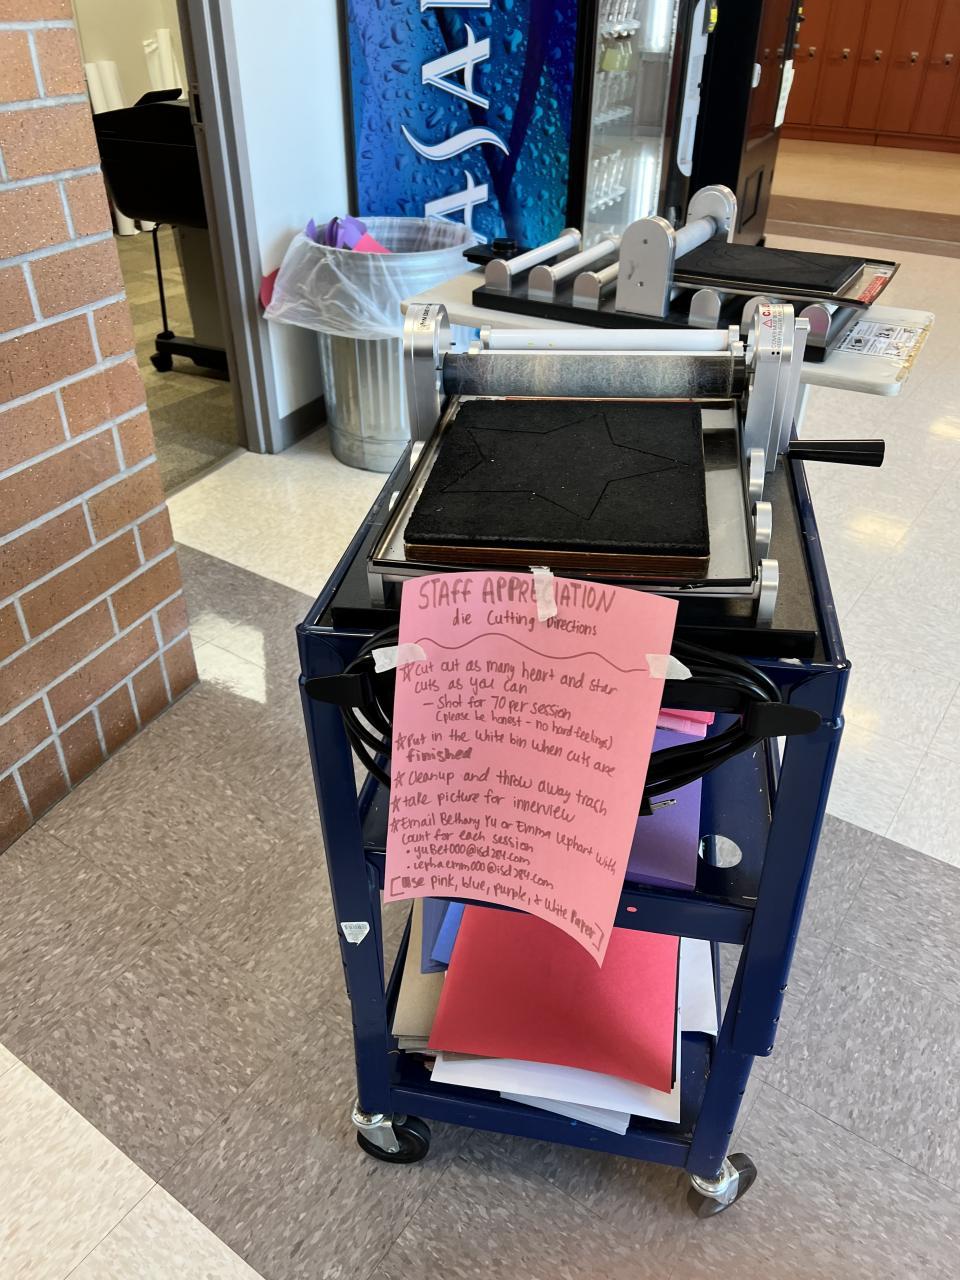 ASA
STAFF APPRECIATION
die Cutting Directions
☆ Cut out as many heart and star
cuts as you can
– Shot for 70 per session
(please be honest – no hard feelings)
☆ Put in the white bin when cuts are
finished
☆ Cleanup and throw away trash
☆ take picture for innerview
☆ Email Bethany Yu or Emma Lephart with
count for each session
• yuBet000@isd284.com
• lephaemm000@isd284.com
[use pink, blue, purple, & White Paper]